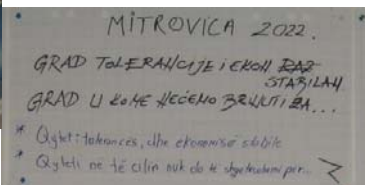 MITROVICA 2022.
GRAD TOLERANCIJE I EKON RAZ
STABILAN
GRAD U KOME NEĆEMO BRINUTI ZA...
* Qytet i tolerances, dhe ekonomisë stabile
* Qyteti në të cilin nuk do të shqetësohemi për...